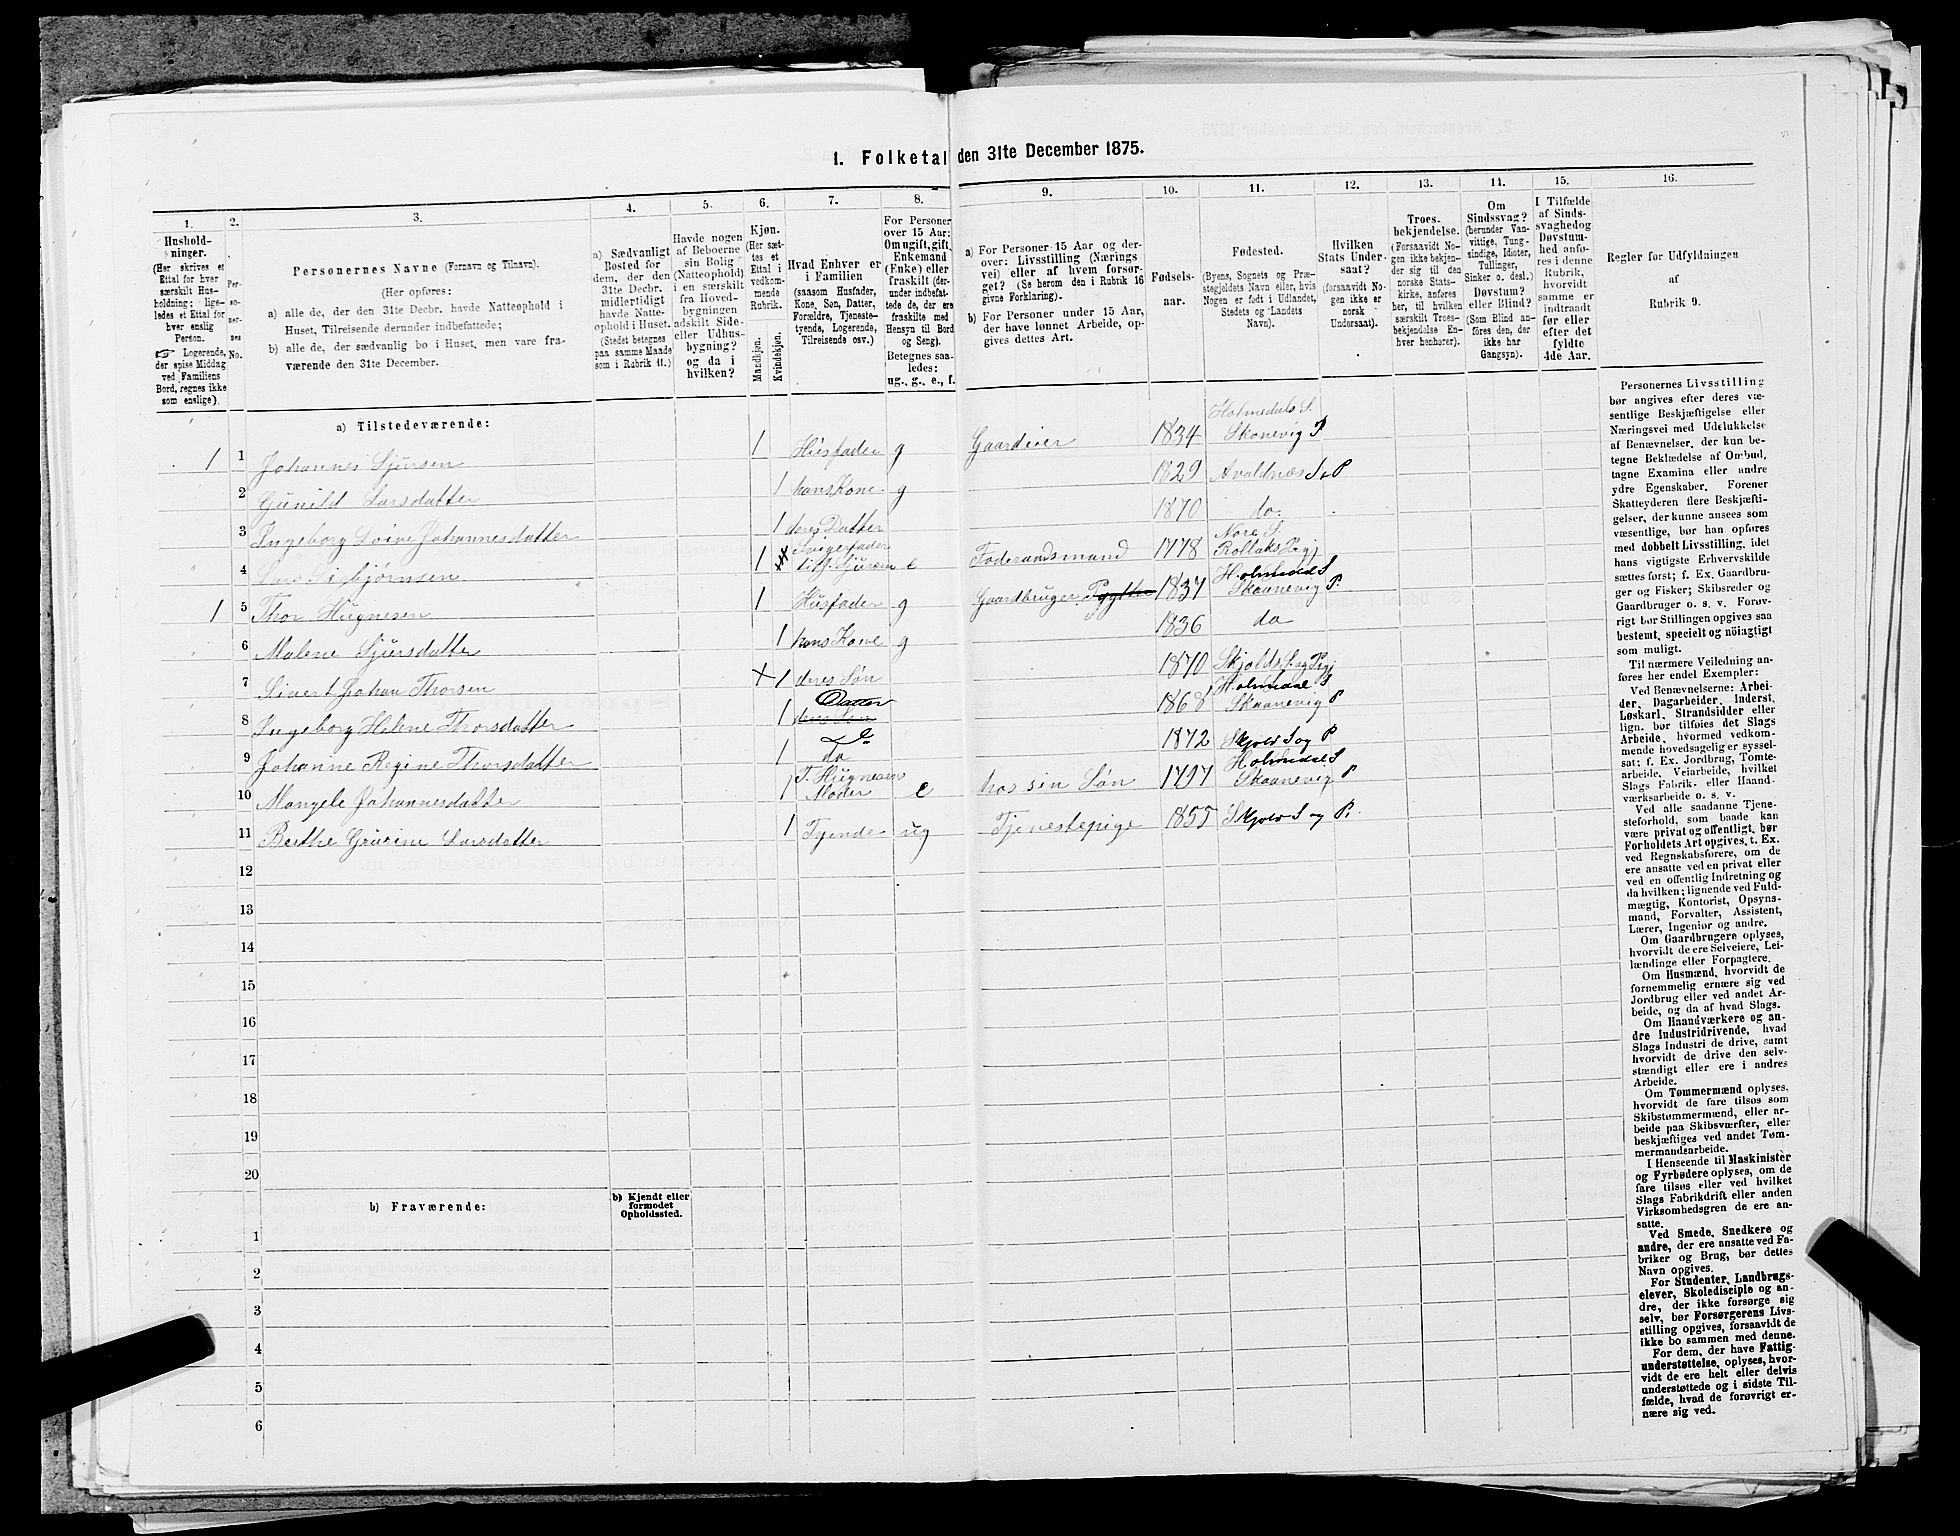 1. Folketal den 31te December 1875.
1. 2. 3. 4. 5. 6. 7. 8. 9. 10. 11. 12. 13. 14. 15. 16.
Hushold-
ninger.
(Her skrives et
Ettal for hver
særskilt Hus-
holdning; lige-
ledes et Ettal for
hver enslig
Person.
Logerende,
der spise Middag
ved Familiens
Bord, regnes ikke
som enslige).
Per-
so-
ner-
nes
No.
Personernes Navne (Fornavn og Tilnavn).
(Her opføres:
a) alle de, der den 31te Decbr. havde Natteophold i
Huset, Tilreisende derunder indbefattede;
b) alle de, der sædvanlig bo i Huset, men vare fra-
værende den 31te December.
a) Sædvanligt
Bosted for
dem, der den
31te Decbr.
midlertidigt
havde Natte-
ophold i Huset.
(Stedet betegnes
paa samme Maade
som i Rubrik 11.)
Havde nogen
af Beboerne
sin Bolig
(Natteophold)
i en særskilt
fra Hoved-
bygningen
adskilt Side-
eller Udhus-
bygning?
og da i
hvilken?
Kjøn.
(Her sæt-
tes et
Ettal i
vedkom-
mende
Rubrik.
Mandkjøn.
Kvindekjøn.
Hvad Enhver er
i Familien
(saasom Husfader,
Kone, Søn, Datter,
Forældre, Tjeneste-
tyende, Logerende,
Tilreisende osv.)
For Personer
over 15 Aar:
Om ugift, gift,
Enkemand
(Enke) eller
fraskilt (der-
under indbefat-
tede de, der ere
fraskilte med
Hensyn til Bord
og Seng).
Betegnes saa-
ledes:
ug., g., e., f.
a) For Personer 15 Aar og der-
over: Livsstilling (Nærings
vei) eller af hvem forsør-
get? (Se herom den i Rubrik 16
givne Forklaring).
b) For Personer under 15 Aar,
der have lønnet Arbeide, op-
gives dettes Art.
Fødsels-
aar.
Fødested.
(Byens, Sognets og Præ-
stegjeldets Navn eller, hvis
Nogen er født i Udlandet,
Stedets og Landets
Navn).
Hvilken
Stats Under-
saat?
(forsaavidt No-
gen ikke er
norsk
Undersaat).
Troes-
bekjendelse.
(Forsaavidt No-
gen ikke bekjen-
der sig til den
norske Stats-
kirke, anføres
her, til hvilken
særskilt Troes-
bekjendelse En-
hver henhører).
Om
Sindssvag?
(herunder Van-
vittige, Tung-
sindige, Idioter,
Tullinger,
Sinker o. desl.)
Døvstum?
eller Blind?
(Som Blind an-
føres den, der
ikke har
Gangsyn).
I Tilfælde
af Sinds-
svaghed og
Døvstum-
hed anfø-
res i denne
Rubrik,
hvorvidt
samme er
indtraadt
før eller
efter det
fyldte
4de Aar.
Regler for Udfyldningen
af
Rubrik 9.
a) Tilstedeværende:
1 1 Johannes Sjursen 1 Husfader g Gaardeier 1834 Holmedals S. Skonevig P
2 Gunild Larsdatter 1 hans Kone g 1829 Avaldnæs S & P
3 Ingeborg Johannesdatter 1 deres Datter 1870 do.
4 Lars 1 Svigerfader e Føderaadsmand 1778
1 5 Thor Hugnesen 1 Husfader g Gaardbruger 1837 Skaanevig P.
6 Malene Sjursdatter 1 hans Kone g 1836 do
7 Sivert Johan Thorsen 1 deres Søn 1870 Skjolds S. og Pgj
8 Ingeborg Helene Thorsdatter 1 Datter 1868 Holmedal S Skaanevig P
9 Johanne Regine Thorsdatter 1 do 1872 Skjold S og P
10 Mangele Johannesdatter 1 T. Hugnesens Moder e hos sin Søn 1797 Holmedal S Skaanevig P
11 Berthe Gurine Larsdatter 1 Tyende ug Tjenestepige 1855 Skjold S og P.
12
13
14
15
16
17
18
19
20
b) Fraværende:
b) Kjendt eller
formodet
Opholdssted.
1
2
3
4
5
6
Personernes Livsstilling
bør angives efter deres væ-
sentlige Beskjæftigelse eller
Næringsvei med Udelukkelse
af Benævnelser, der kun be-
tegne Beklædelse af Ombud,
tagne Examina eller andre
ydre Egenskaber. Forener
Skatteyderen flere Beskjæfti-
gelser, der kunne ansees som
væsentlige, bør han opføres
med dobbelt Livsstilling, idet
hans vigtigste Erhvervskilde
sættes først; f. Ex. Gaardbru-
ger og Fisker; Skibsreder og
Gaardbruger o. s. v. Forøv-
rigt bør Stillingen opgives saa
bestemt, specielt og nöiagtigt
som muligt.
Til nærmere Veiledning an-
føres her endel Exempler:
Ved Benævnelserne: Arbei-
der, Dagarbeider, Inderst,
Løskarl, Strandsidder eller
lign. bør tilføies det Slags
Arbeide, hvormed vedkom-
mende hovedsagelig er syssel-
sat; f. Ex. Jordbrug, Tomte-
arbeide, Veiarbeide, hvilket
Slags Fabrik- eller Haand-
værksarbeide o. s. v.
Ved alle saadanne Tjene-
steforhold, som baade kan
være privat og offentligt, bør
Forholdets Art opgives, t. Ex.
ved Regnskabsførere, om de
ere ansatte ved en privat eller
ved en offentlig Indretning og
da hvilken; lignende ved Fuld-
mægtig, Kontorist, Opsyns-
mand, Forvalter, Assistent,
Lærer, Ingeniør og andre.
Om Gaardbrugere oplyses,
hvorvidt de ere Selveiere, Lei-
lændinge eller Forpagtere.
Om Husmænd, hvorvidt de
fornemmelig ernære sig ved
Jordbrug eller ved andet Ar-
beide, og da af hvad Slags.
Om Haandværkere og an-
dre Industridrivende, hvad
Slags Industri de drive, samt
hvorvidt de drive den selv-
stændigt eller ere i andres
Arbeide.
Om Tømmermænd oplyses,
hvorvidt de fare tilsøs som
Skibstømmermænd, eller ar-
beide paa Skibsværfter, eller
beskjæftiges ved andet Tøm-
mermandsarbeide.
I Henseende til Maskinister
og Fyrbødere oplyses, om de
fare tilsøs eller ved hvilket
Slags Fabrikdrift eller anden
Virksomhedsgren de ere an-
satte.
Ved Smede, Snedkere og
andre, der ere ansatte ved Fa-
briker og Brug, bør dettes
Navn opgives.
For Studenter, Landbrugs-
elever, Skoledisciple og an-
dre, der ikke forsørge sig
selv, bør Forsørgerens Livs-
stilling opgives, forsaavidt de
ikke bo sammen med denne.
For dem, der have Fattig-
understøttelse, oplyses, hvor-
vidt de ere helt eller delvis
understøttede og i sidste Til-
fælde, hvad de forøvrigt er-
nære sig ved.